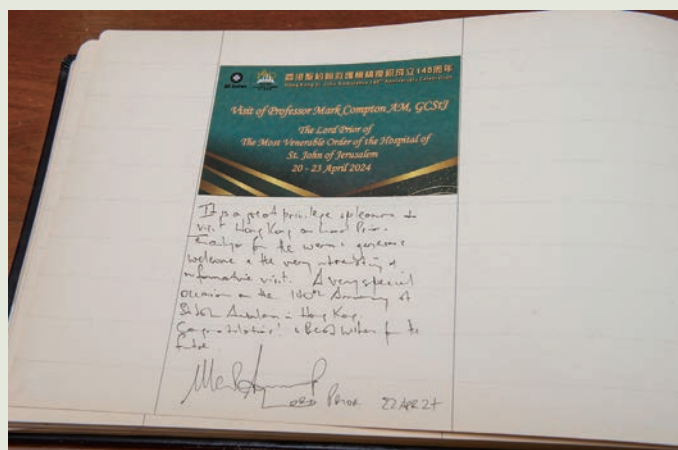 香港聖約翰救護機構授銜成立140周年
Hong Kong St. John Ambulance 140th Anniversary Celebration
Visit of Professor Mark Compton AM, GCStJ
The Lord Prior of
The Most Venerable Order of the Hospital of
St. John of Jerusalem
20 - 23 April 2024
It is a great privilege & pleasure to
visit Hong Kong as Lord Prior.
for the warm & generous
welcome & the very interesting &
informative visit. A very special
occasion on the 140th Anniversary of
St John Ambulance in Hong Kong.
Congratulations! & Best Wishes for the
future
LORD PRIOR 22 APR 24